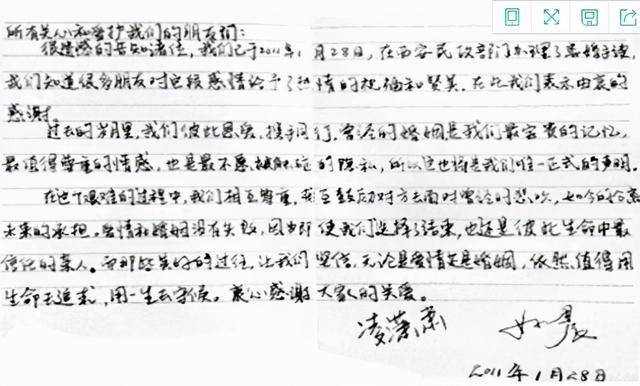 所有关心和爱护我们的朋友们:
很遗憾的告知诸位,我们已于2011年1月28日,在西安民政部门办理了离婚手续,
我们知道很多朋友对这段感情给予了热情的祝福和赞美,在此我们表示由衷的
感谢。
过去的岁月里,我们彼此恩爱,携手同行,曾经的婚姻是我们最宝贵的记忆,
最值得尊重的情感,也是最不愿被触碰的隐私,所以这也将是我们唯一正式的声明。
在这个艰难的过程中,我们相互尊重,互鼓励对方去面对曾经的悲欢,如今的分离
未来的承担。爱情和婚姻没有失败,因为即使我们选择了结束,也还是彼此生命中最
信任的亲人。而那些美好的过往,让我们坚信,无论是爱情还是婚姻,依然值得用
生命去追求,用一生去守候。衷心感谢大家的关爱。
凌潇肃 姚晨
2011年1月28日